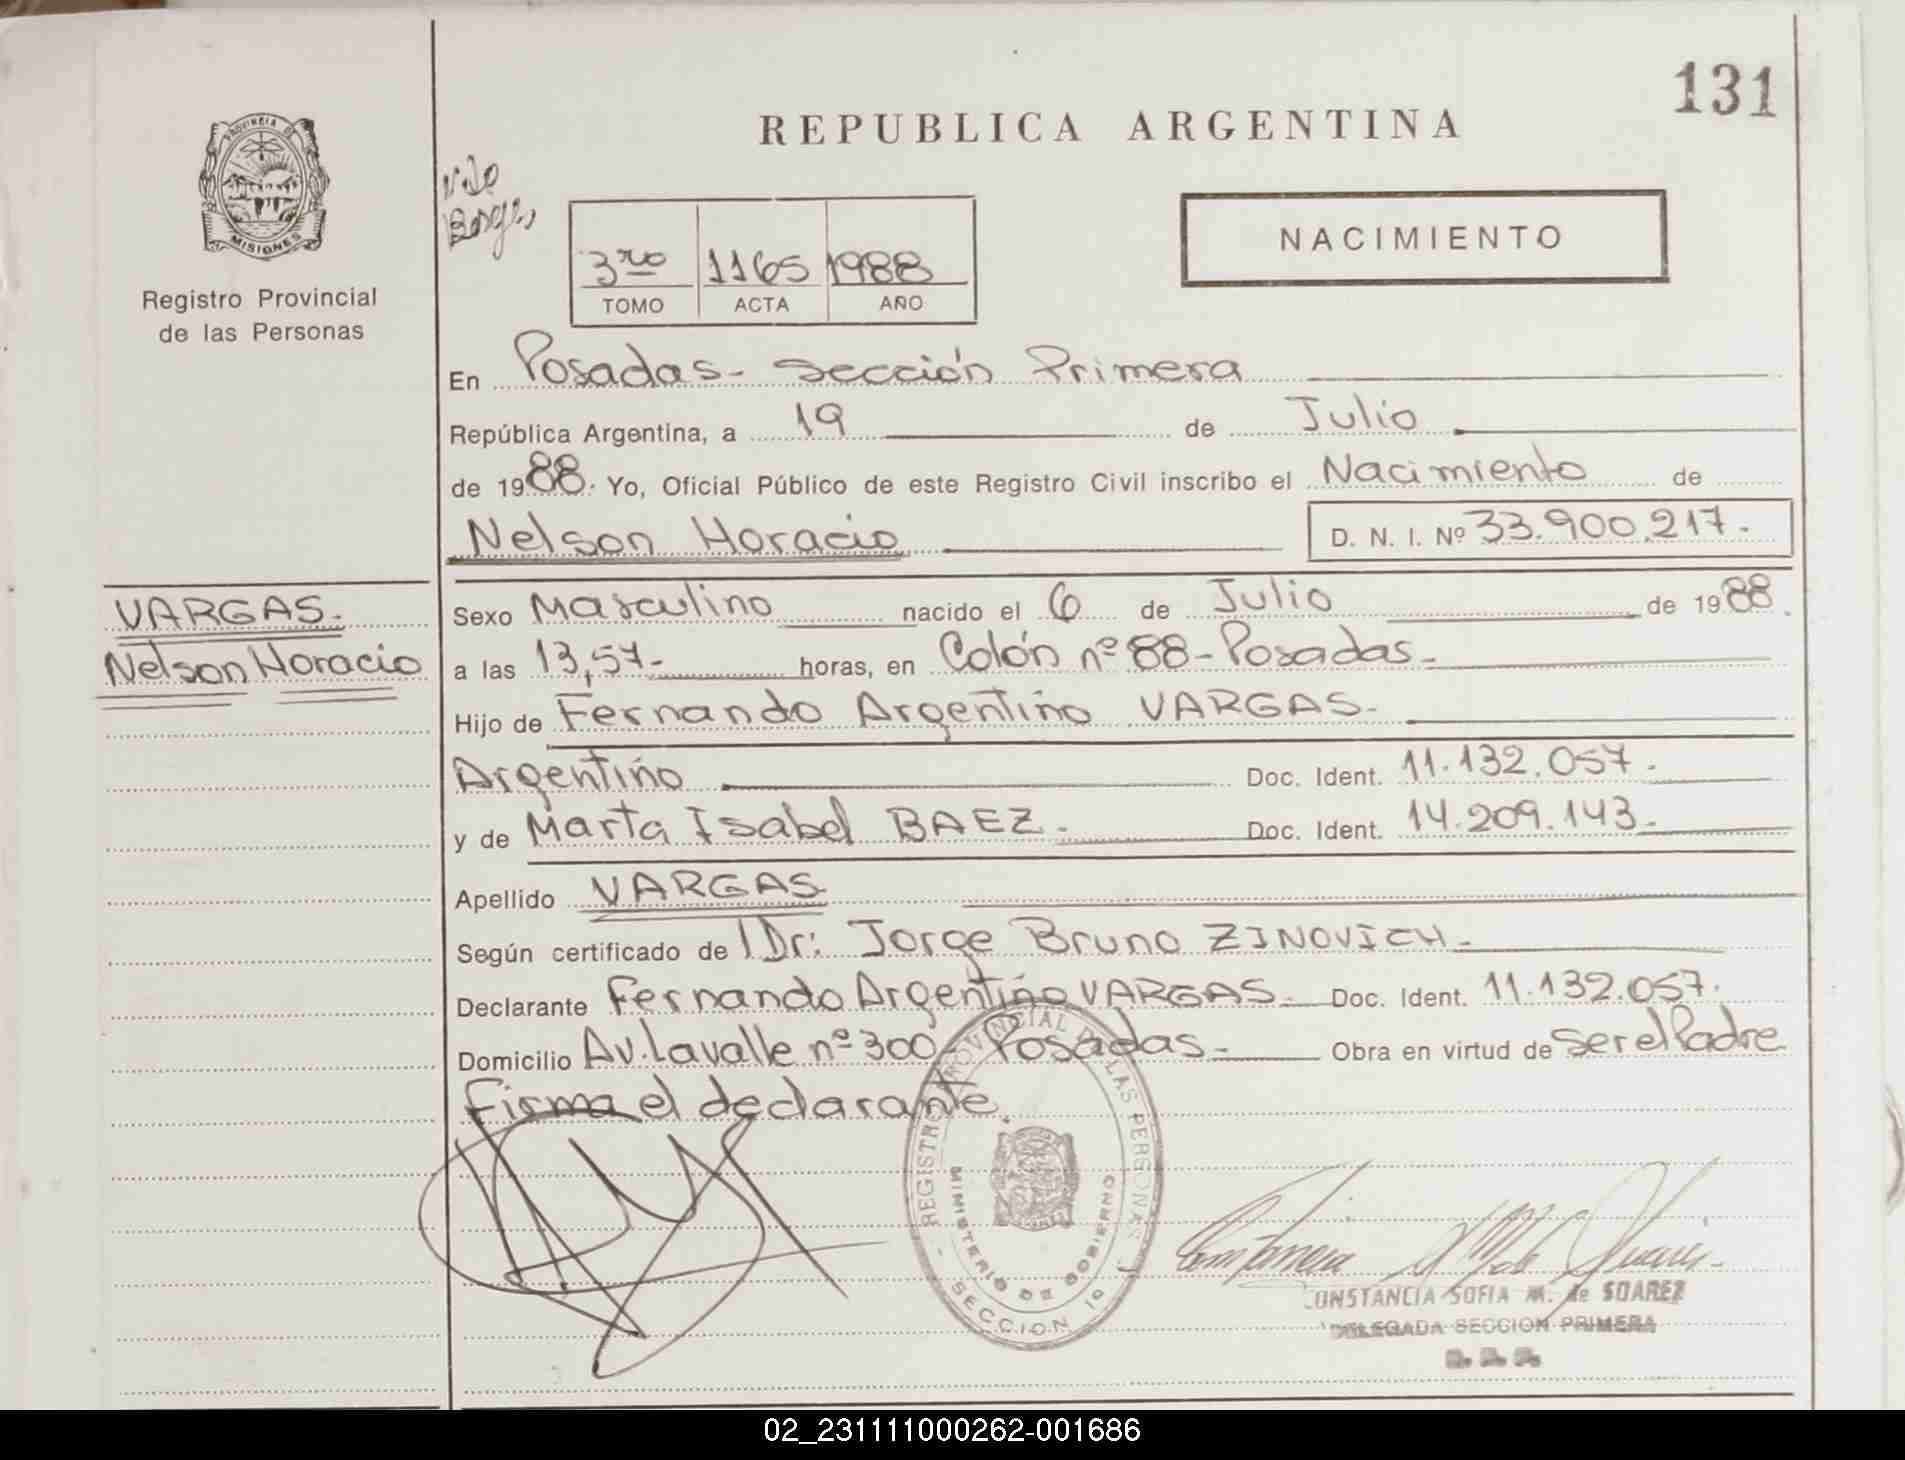 131
REPUBLICA ARGENTINA
PROVINCIA DE
MISIONES
Registro Provincial
de las Personas
NACIMIENTO
3ro 1165 1988
TOMO ACTA AÑO
En Posadas - Sección Primera
República Argentina, a 19 de Julio
de 1988. Yo, Oficial Público de este Registro Civil inscribo el Nacimiento de
Nelson Horacio D. N. I. Nº 33.900.217.
VARGAS.
Nelson Horacio
Sexo Masculino nacido el 6 de Julio de 1988.
a las 13,57- horas, en Colón nº 88 - Posadas.
Hijo de Fernando Argentino VARGAS-
Argentino Doc. Ident. 11.132.057.
y de Marta Isabel BAEZ. Doc. Ident. 14.209.143.
Apellido VARGAS
Según certificado de Dr: Jorge Bruno ZINOVICH-
Declarante Fernando Argentino VARGAS- Doc. Ident. 11.132.057.
Domicilio Av. Lavalle nº 300 - Posadas- Obra en virtud de ser el Padre
Firma el declarante.
REGISTRO PROVINCIAL DE LAS PERSONAS
MINISTERIO DE GOBIERNO
SECCION 1º
CONSTANCIA SOFIA M. de SOAREZ
DELEGADA SECCION PRIMERA
02_231111000262-001686